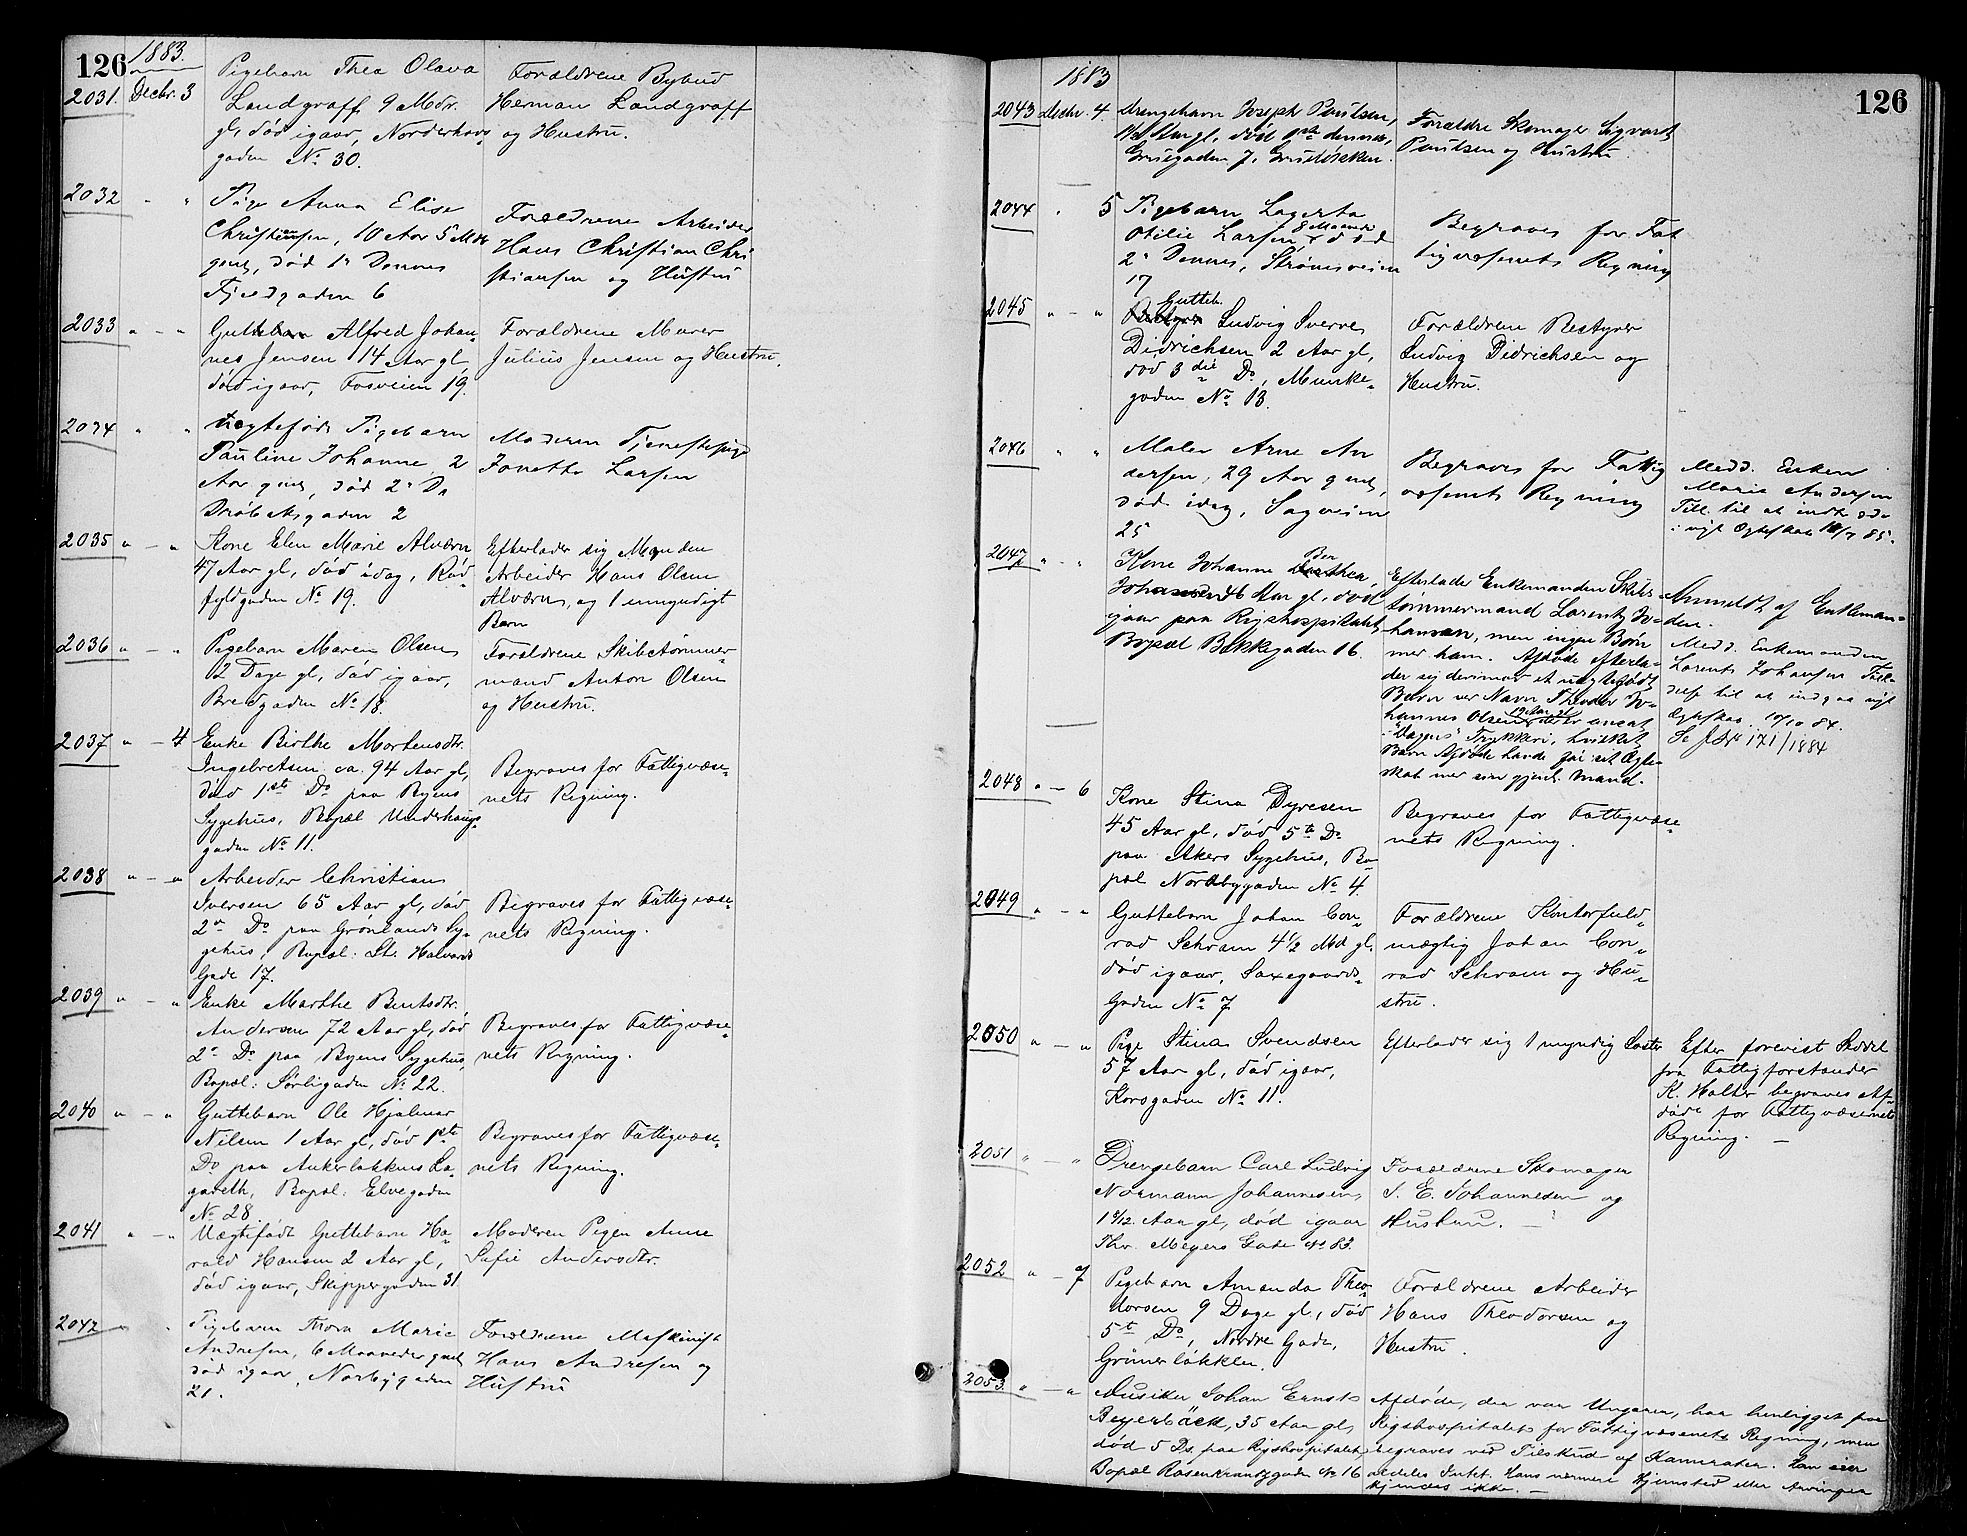 126
1883.
2031. Decbr. 3 Pigebarn Thea Olava
Landgraff 9 Mdr.
gl, død igaar, Norderhovs
gaden No 30.
Forældrene Bybud
Herman Landgraff
og Hustru.
2032 " " Pige Anna Elise
Christiansen, 10 Aar 5 Mdr
gml, død 1ste Dennes
Fjeldgaden 6
Forældrene Arbeider
Hans Christian Chri
stiansen og Hustru
2033 " — " Guttebarn Alfred Johan-
nes Jensen 14 Aar gl,
død igaar, Fosveien 19.
Forældrene Murer
Julius Jensen og Hustru.
2034 " " Uægtefødt Pigebarn
Pauline Johanne, 2
Aar gml, død 2 Ds
Drøbaksgaden 2
Moderen Tjenestepige
Janette Larsen
2035 " — " Kone Elen Marie Alværn
47 Aar gl, død idag, Rød-
fyldgaden No 19.
Efterlader sig Manden
Arbeider Hans Olsen
Alværn, og 1 umyndigt
Barn
2036 " — " Pigebarn Maren Olsen
12 Dage gl, død igaar,
Bredgaden No 18.
Forældrene Skibstømmer-
mand Anton Olsen
og Hustru.
2037 " — 4 Enke Birthe Mortensdtr.
Ingebretsen ca. 94 Aar gl,
død 1ste Do paa Byens
Sygehus, Bopæl Underhaugs-
gaden No 11.
Begraves for Fattigvæse-
nets Regning.
2038 " — " Arbeider Christian
Iversen 65 Aar gl, død
2den Do paa Grønlands Sy-
gehus, Bopæl: St. Halvards
Gade 17.
Begraves for Fattigvæse-
nets Regning.
2039 " — " Enke Marthe Bentsdtr.
Andersen 72 Aar gl, død
2den Do paa Byens Sygehus,
Bopæl: Sørligaden No 22.
Begraves for Fattigvæse-
nets Regning.
2040 " — " Guttebarn Ole Hjalmar
Nilsen 1 Aar gl, død 1ste
Do paa Ankerløkkens La-
gareth, Bopæl: Elvegaden
No 28
Begraves for Fattigvæse-
nets Regning.
2041 " — " Uægtefødt Guttebarn Ha-
rald Hansen 2 Aar gl,
død igaar, Skippergaden 31.
Moderen Pigen Anne
Sofie Andersdtr.
2042 " " Pigebarn Thora Marie
Andresen, 6 Maaneder gml,
død igaar, Norbygaden
21.
Forældrene Maskinist
Hans Andresen og
Hustru
126
1883
2043 Decbr. 4. Drengebarn Joseph Paulsen,
gl, død dennes,
Gruegaden 7, Grüsløkken.
Forældre Skomager Sigvard
Paulsen og Hustru.
2044 " 5 Pigebarn Lagerta
Otilie Larsen, 8 Maaned død
2 Dennes, Strømsveien
17
Begraves for Fat
tigvæsenets Regning
2045 " — " Gutteb.
Ludvig Sverre
Didrichsen 2 Aar gl,
død 3die Do, Munke-
gaden No 13.
Forældrene Bestyrer
Ludvig Didrichsen og
Hustru.
2046 " " Maler Arne An
dersen, 29 Aar gml,
død idag, Sagveien
25
Begraves for Fattig
væsenets Regning
Medd. Enken
Marie Andersen
Till. til at indtræde
i nyt Ægteskab 85.
2047 " — " Kone Johanne Ber
thea,
Johansen 46 Aar gl, død
igaar paa Rigshospitalet,
Bopæl Bakkegaden 16.
Efterlader Enkemanden Skibs-
tømmermand Larentz Jo-
hansen, men ingen Børn
med ham. Afdøde efterla-
der sig derimod et uægtefødt
Barn ved Navn Theodor Jo-
hannes Olsen 19 Aar gl. der er ansat
i "Dagens" Trykkeri, hvilket
Barn Afdøde havde før sit Ægte-
skab med sin gjenl. Mand.
Anmeldt af Enkeman-
den.
Medd. Enkemanden
Larents Johansen Till-
delse til at indgaa nyt
Ægteskab. 10/10 84.
Se JNo 171/1884
2048 " — 6 Kone Stina Dyresen
45 Aar gl, død 5te Do
paa Akers Sygehus, Bo-
pæl Nordbygaden No 4.
Begraves for Fattigvæse-
nets Regning.
2049 " — " Guttebarn Johan Con-
rad Schram 4 1/2 Md gl.
død igaar, Saxegaards-
Gaden No 7.
Forældrene Kontorfuld-
mægtig Johan Con-
rad Schram og Hu-
stru.
2050 " — " Pige Stina Svendsen
57 Aar gl, død igaar,
Korsgaden No 11.
Efterlader sig 1 myndig Søster
Efter forevist Seddel
fra Fattigforstander
K. Halter begraves Af-
døde for Fattigvæsenets
Regning. —
2051 " — " Drengebarn Carl Ludvig
Normann Johannesen,
1 8/12. Aar gl, død igaar
Thv. Meyers Gade No 83.
Forældrene Skomager
J. E. Johannesen og
Hustru. —
2052 " — 7 Pigebarn Amanda Theo-
dorsen 9 Dage gl, død
5te Do, Nordre Gade,
Grünerløkken.
Forældrene Arbeider
Hans Theodorsen og
Hustru.
2053 " — " Musiker Johan Ernst
Beyerböck, 35 Aar gl,
død 5 Ds. paa Rigshospitalet,
Bopæl Rosenkrantzgaden No 16
Afdøde, der var Ungarer, har henligget paa
Rigshospitalet for Fattigvæsenets Regning, men
begraves ved Tilskud af Kamerater. Han eier
aldeles Intet. Hans nærmere Hjemsted eller Arvinger
kjendes ikke. —